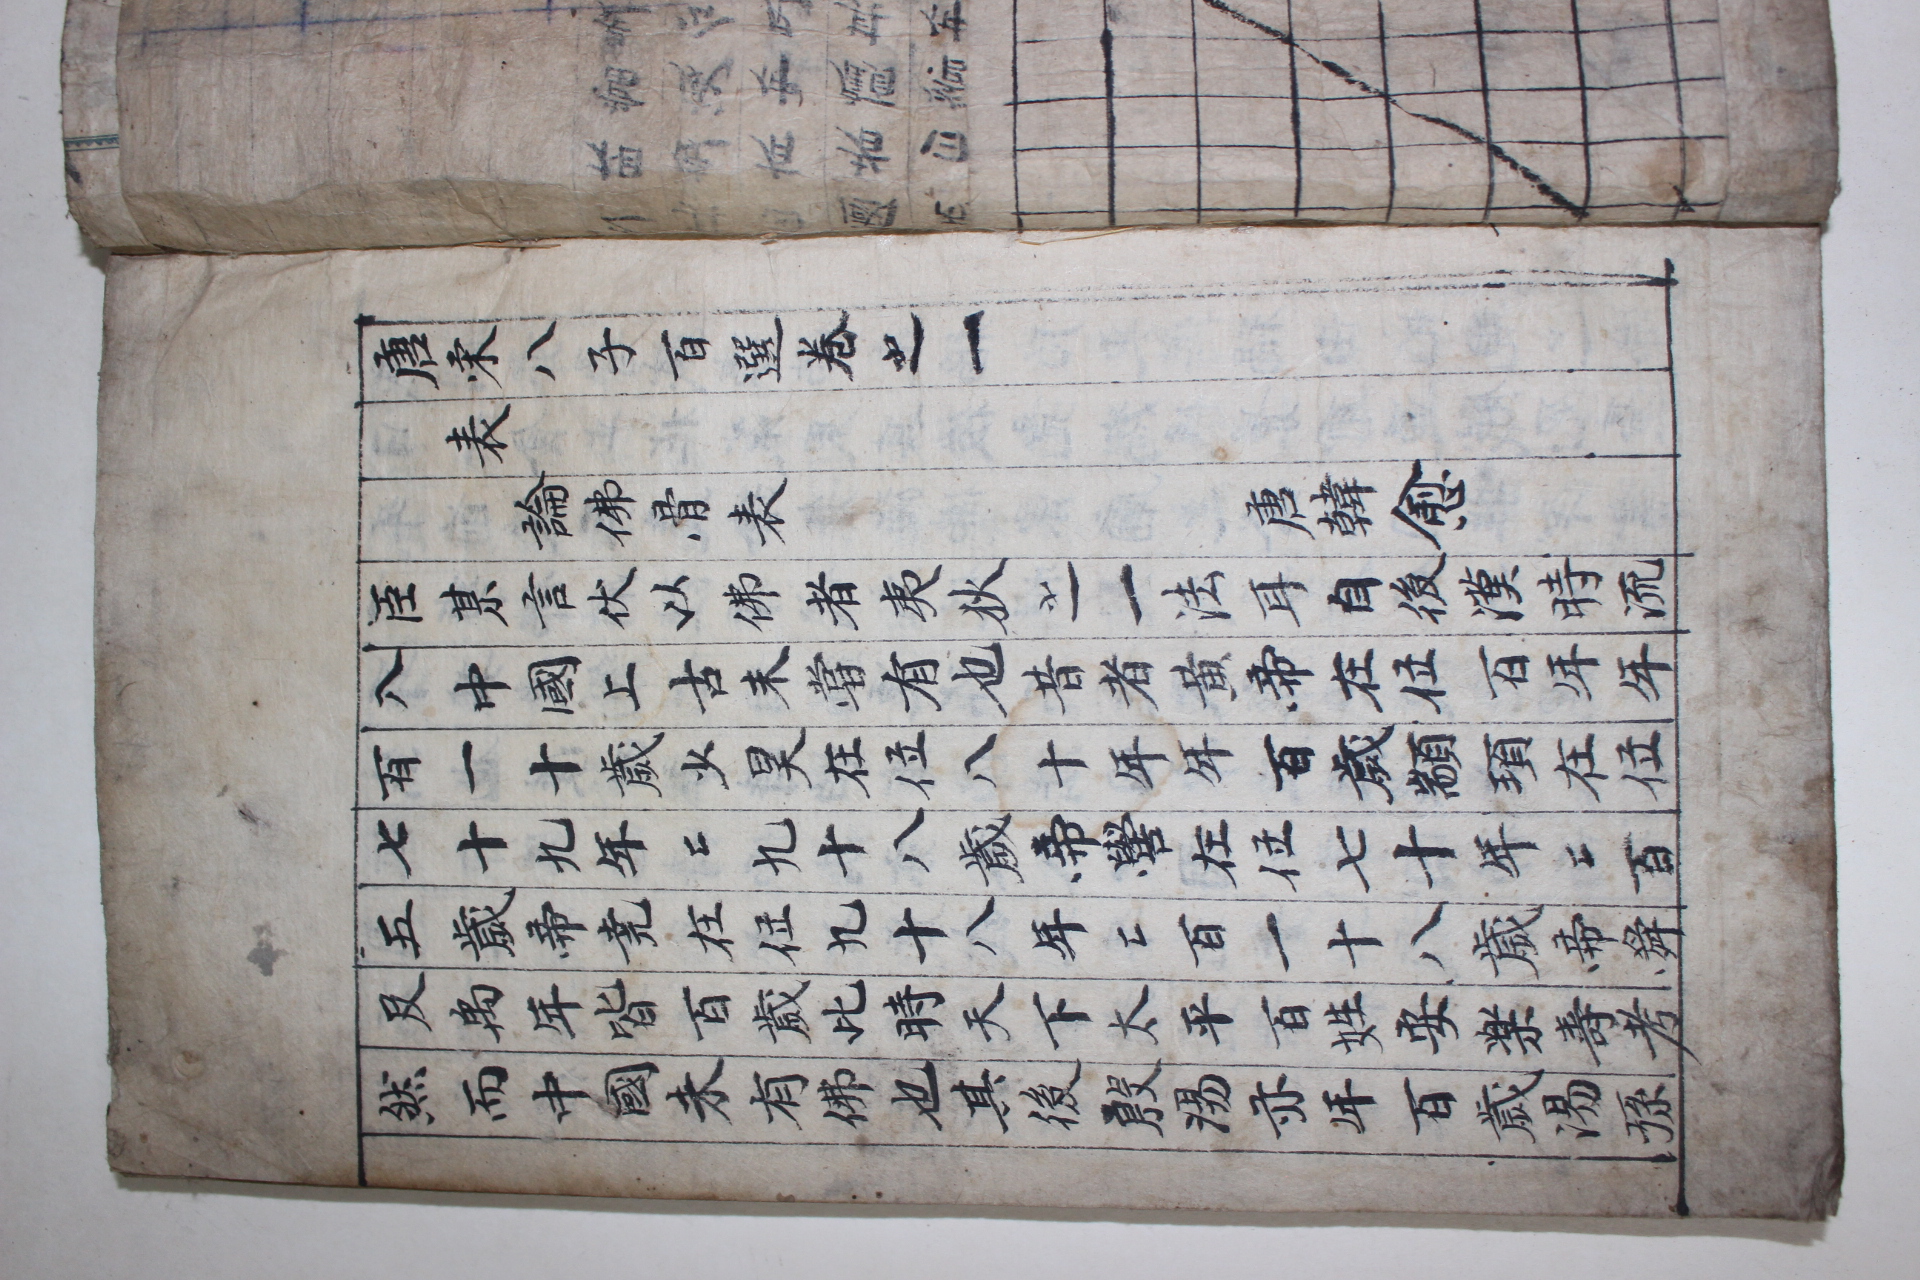 唐宋八子百選卷之一
表
論佛骨表 唐韓愈
臣某言伏以佛者夷狄之一法耳自後漢時流
八中國上古未嘗有也昔者黃帝在位百年年
百一十歲少昊在位八十年年百歲顓頊在位
七十九年〻九十八歲帝嚳在位七十年〻百
五歲帝堯在位九十八年〻百一十八歲帝舜
及禹年皆百歲比時天下太平百姓安樂壽考
然而中國未有佛也其後殷湯亦年百歲湯孫